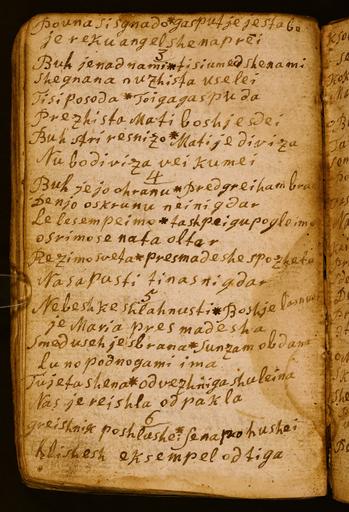 je reku angel shena prei
3
Buh je nad nami * ti si umed shenami
Shegnana nu zhista uselei
Ti si posoda * Toiga gaspuda
Prezhista Mati boshje sdei
Buh stri resnizo * Mati je diviza
Nu bo diviza vei kumei
4
Buh je jo ohranu * pred greiham
Denjo oskrunu nei nigdar
Le lesem peimo * ta shpeigu pogleimo
osrimo se nata oltar
Rezimo sveta * pres madeshe spozheta
Nas apusti tinas nigdar
5
Nebeshke shlahnusti * Boshje
je Maria pres madesha
Smed useh je sbrana * Sunzam obdana
Luno pod nogami ima
Tvjeta shena * od vezhniga shuleina
Nas je reishla od pakla
6
greishnik poshlushei * senapro hushei
slishesh eksempel od tiga